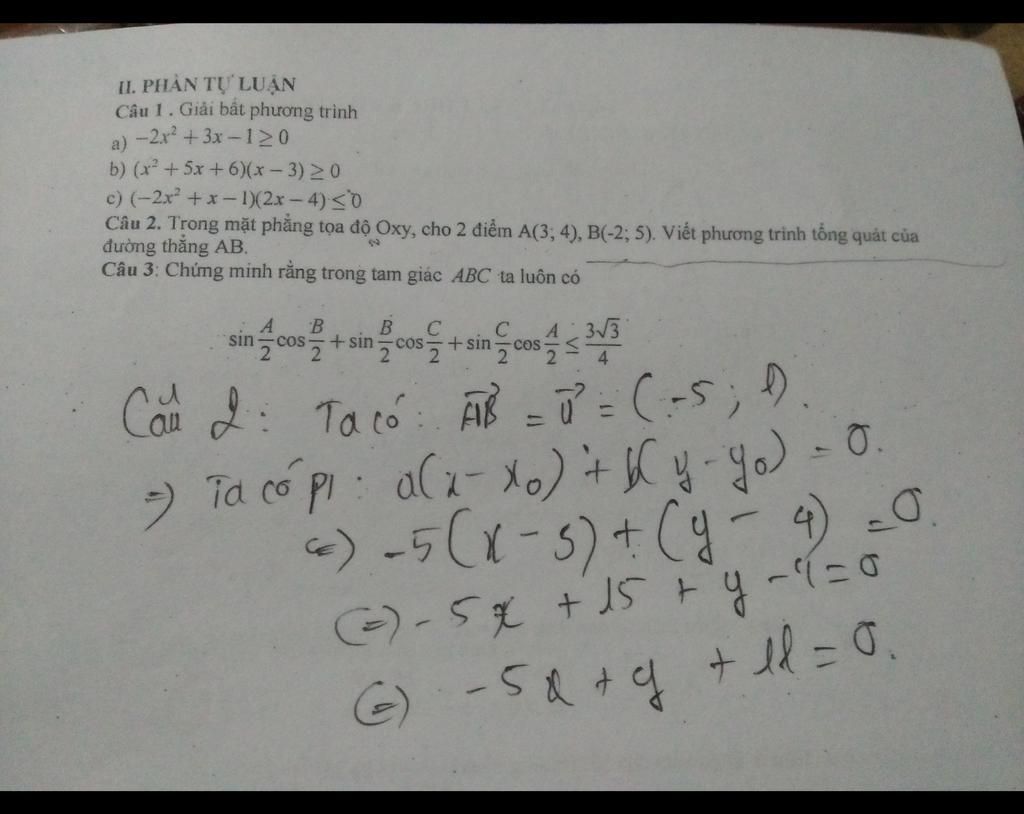 II. PHẦN TỰ LUẬN
Câu 1 . Giải bất phương trình
a) −2x² + 3x − 1 ≥ 0
b) (x² + 5x + 6)(x − 3) ≥ 0
c) (−2x² + x − 1)(2x − 4) ≤ 0
Câu 2. Trong mặt phẳng tọa độ Oxy, cho 2 điểm A(3; 4), B(-2; 5). Viết phương trình tổng quát của
đường thẳng AB.
Câu 3: Chứng minh rằng trong tam giác ABC ta luôn có
sin A/2 cos B/2 + sin B/2 cos C/2 + sin C/2 cos A/2 ≤ 3√3/4
Câu 2 : Ta có : AB⃗ = u⃗ = (-5 ; 1).
=> Ta có pt : a(x - x₀) + b(y - y₀) = 0.
<=> -5(x - 3) + (y - 4) = 0.
<=> -5x + 15 + y - 4 = 0
<=> -5x + y + 11 = 0.